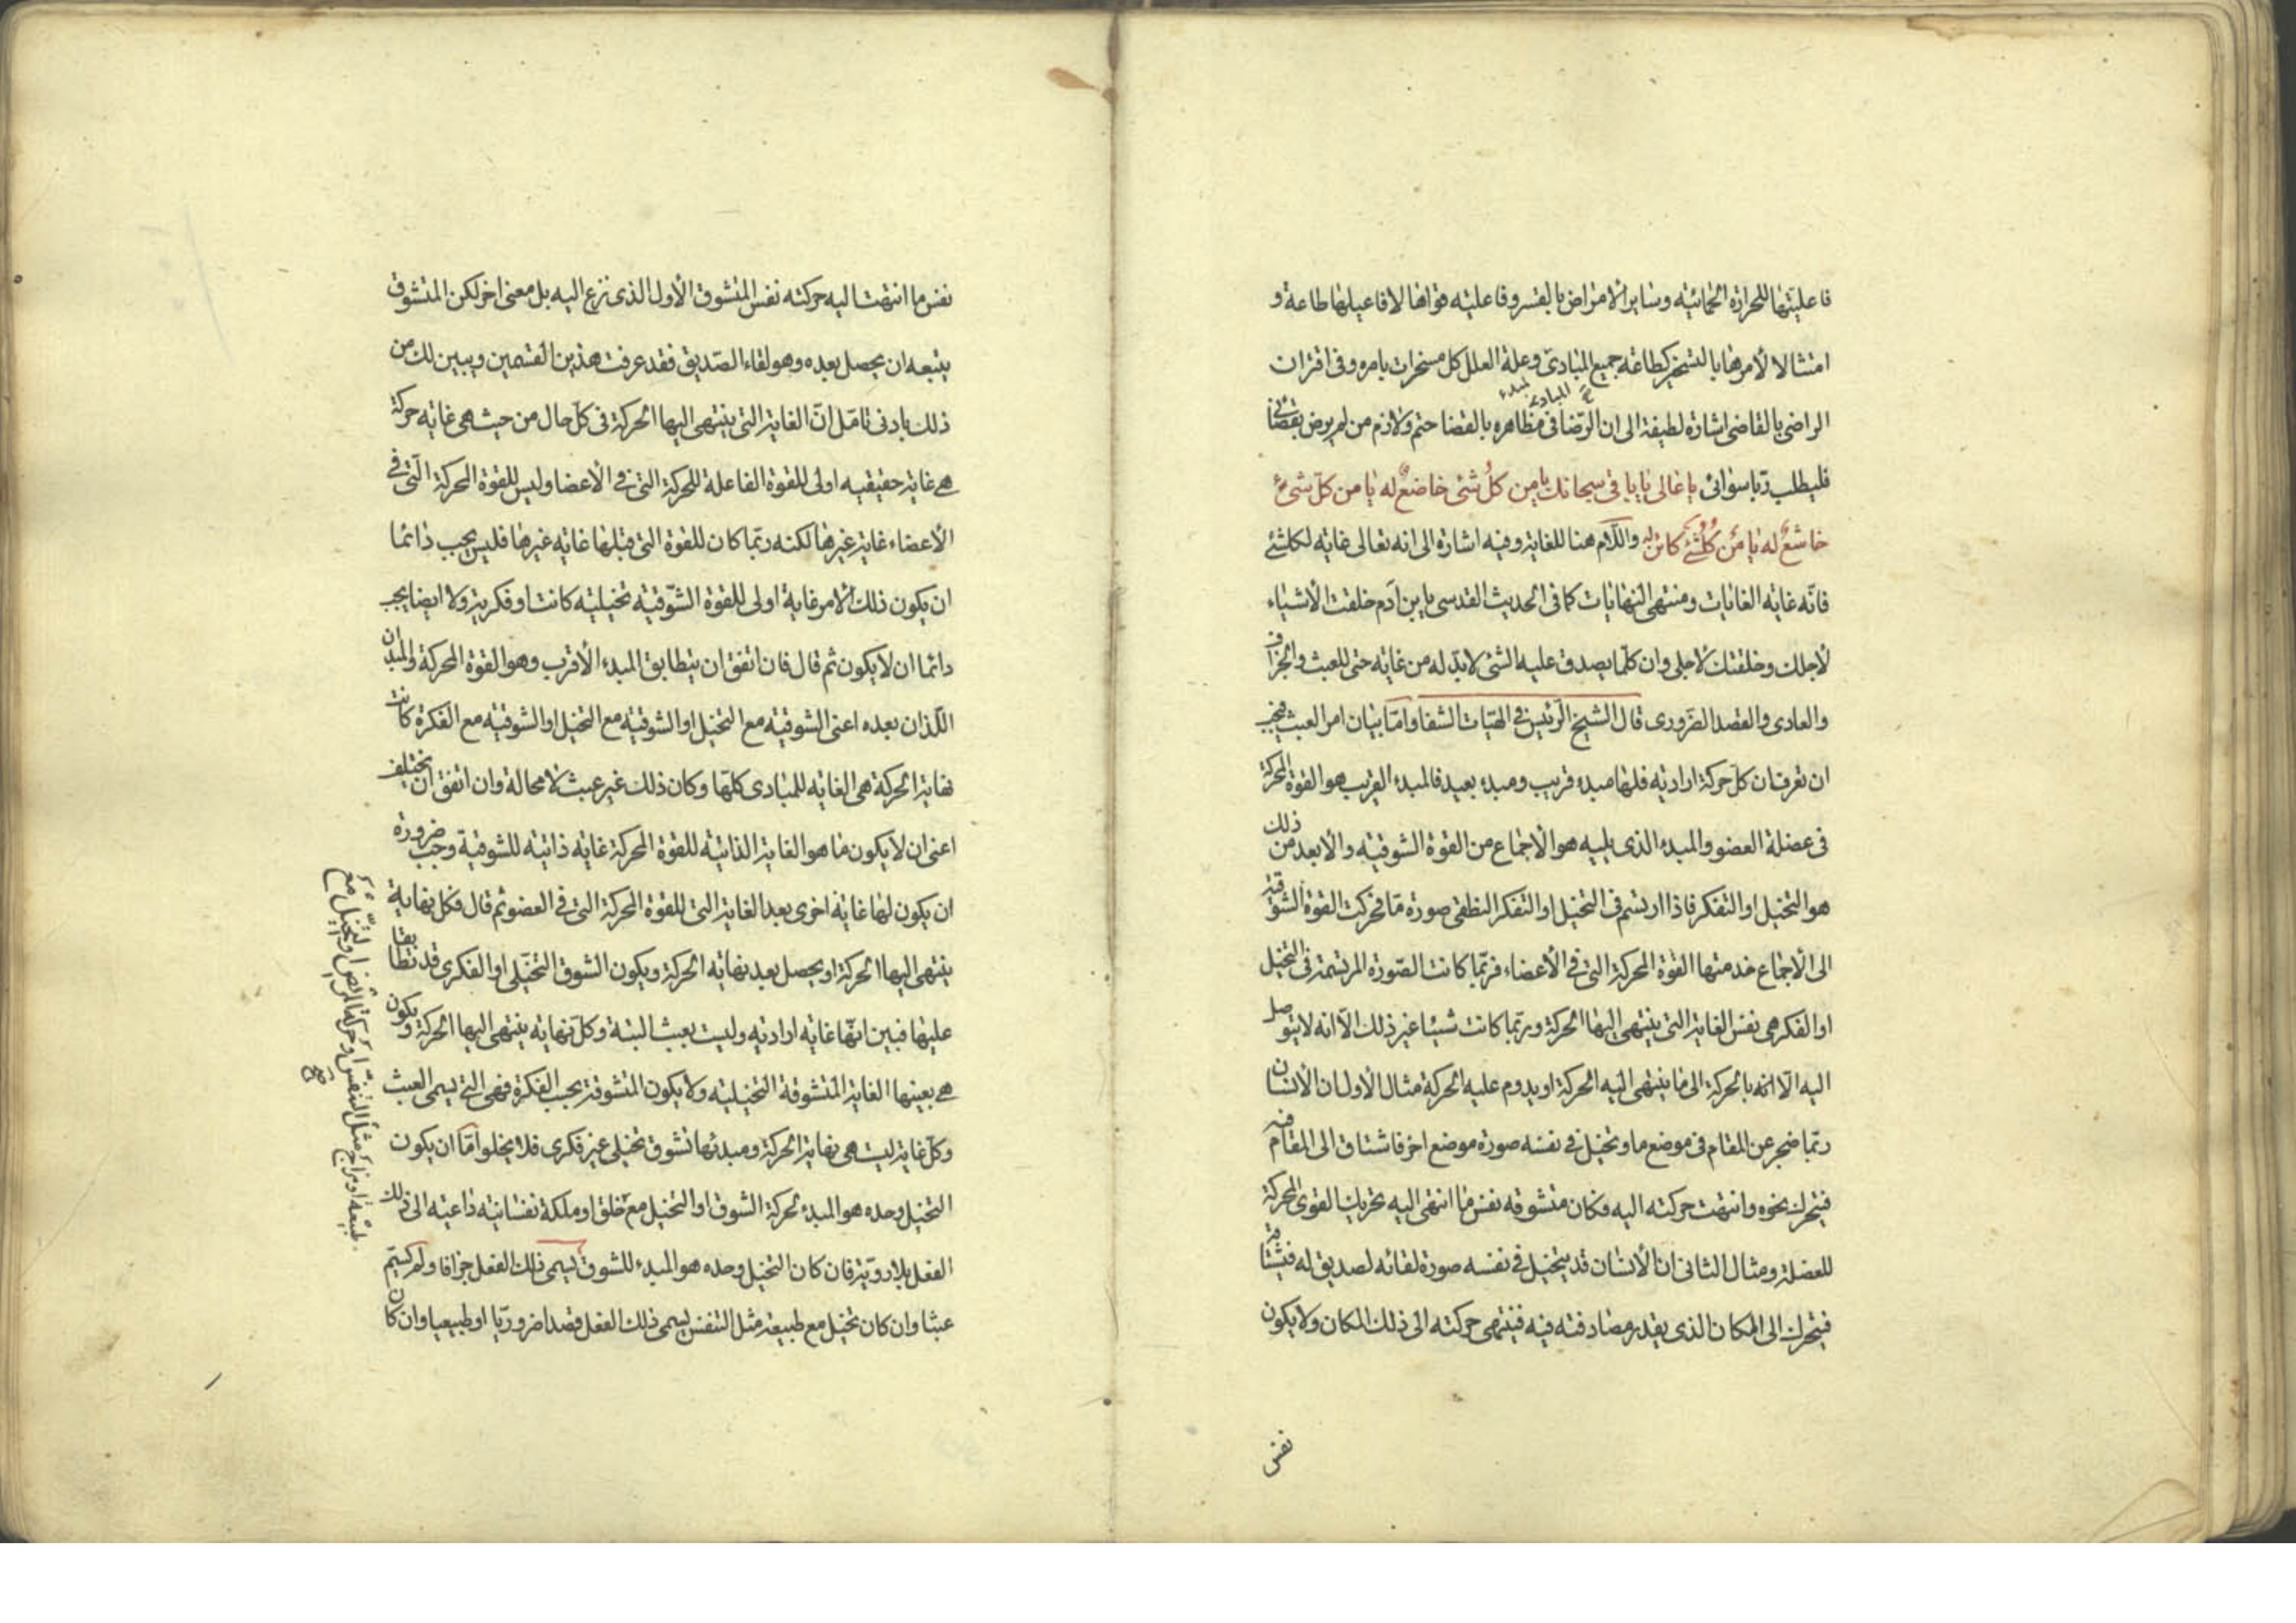 فاعليتها للحرارة الحمائيه وساير الامراض بالقسر وفاعليه قواها لافاعيلها طاعة و
امتثالا لأمرها بالتسخير كطاعة جميع المبادى وعلة العلل كل مسخرات بامره وفى اقتران
المبادى لمبدء
الراضى بالقاضى اشارة لطيفة الى ان الرّضا فى مظاهره بالقضا حتم ولازم من لم يرض بقضائى
فليطلب ربّا سوائى يا عالى يا باقى سبحانك يا من كلُّ شئى خاضعٌ له يا من كلّ شىءٍ
خاشعٌ له يا من كُلُّ شَئٍ كائن له واللّام هنا للغاية وفيه اشارة الى انه تعالى غايه لكلشئ
فانّه غايه الغايات ومنتهى النهايات كما فى الحديث القدسى يابن آدم خلقت الأشياء
لأجلك وخلقتك لأجلى وان كلّما يصدق عليه الشئ لابدّ له من غايه حتى للعبث والجزاف
والعادى والقصد الضّرورى قال الشيخ الرّئيس فى الهيّات الشفا وامّا بيان امر العبث فيجب
ان تعرف ان كلّ حركة اراديه فلها مبدء قريب ومبدء بعيد فالمبدء القريب هو القوة المحركة
فى عضلة العضو والمبدء الذى يليه هو الأجماع من القوة الشوقيّه والأبعد من ذلك
هو التخيل او التفكر فاذا ارتسم فى التخيل او التفكر النطقى صورة مّا فحركت القوة الشوقيّه
الى الأجماع خدمتها القوة المحركة التى فى الأعضاء فربّما كانت الصّورة المرتسمة فى التخيل
او الفكر هى نفس الغاية التى ينتهى اليها الحركة وربّما كانت شيئا غير ذلك الّا انه لا يتوصل
اليه الّا انّه بالحركة الى ما ينتهى اليه الحركة او يدوم عليه الحركة مثال الأول ان الأنسان
ربّما ضجر عن المقام فى موضع ما وتخيل فى نفسه صورة موضع اخر فاشتاق الى المقام فيه
فتحرك نحوه وانتهت حركته اليه فكان متشوقه نفس ما انتهى اليه تحريك القوى المحركة
للعضلة ومثال الثانى ان الأنسان قد يتخيل فى نفسه صورة لقائه لصديق له فيشتاقه
فيتحرك الى المكان الذى يقدر مصادفته فيه فينتهى حركته الى ذلك المكان ولا يكون
نفس
نفس ما انتهت اليه حركته نفس المتشوق الأول الذى نزع اليه بل معنى اخر لكن المتشوق
يتبعه ان يحصل بعده وهو لقاء الصّديق فقد عرفت هذين القسمين ويبين لك من
ذلك بادنى تامّل انّ الغاية التى ينتهى اليها الحركة فى كلّ حال من حيث هى غايه حركة
هى غاية حقيقيه اولى للقوة الفاعلة للحركة التى فى الأعضا وليس للقوة المحركة الّتى فى
الأعضاء غاية غيرها لكنه ربّما كان للقوة التى قبلها غايه غيرها فليس يجب دائما
ان يكون ذلك الأمر غاية اولى للقوة الشّوقيّه تخيليّه كانت او فكرية ولا ايضا يجب
دائما ان لا يكون ثم قال فان اتفق ان يتطابق المبدء الأقرب وهو القوة المحركة والمبدان
اللّذان بعده اعنى الشوقيّه مع التخيل او الشوقيّه مع التخيل او الشوقيّه مع الفكرة كانت
نهاية الحركة هى الغايه للمبادى كلّها وكان ذلك غير عبث لا محالة وان اتفق ان يختلف
اعنى ان لا يكون ما هو الغاية الذاتيّة للقوة المحركة غايه ذاتيّه للشوقيّة وجب ضرورة
ان يكون لها غاية اخرى بعد الغاية التى للقوة المحركة التى فى العضو ثم قال فكل نهاية
ينتهى اليها الحركة او يحصل بعد نهاية الحركة ويكون الشوق التخيّلى او الفكرى قد تطابقا
عليها فبين انّها غايه اراديه وليست بعبث البتة وكلّ نهايه ينتهى اليها الحركة ويكون
هى بعينها الغاية المتشوقة التخيليّه ولا يكون المتشوقة بحسب الفكرة فهى التى يسمى العبث
وكلّ غاية ليست هى نهاية الحركة ومبدئها تشوق تخيلى غير فكرى فلا يخلوا امّا ان يكون
التخيل وحده هو المبدء لحركة الشوق او التخيل مع خلق او ملكة نفسانيه داعيه الى ذلك
الفعل بلا رويّة فان كان التخيل وحده هو المبدء للشوق يسمى ذلك الفعل جزافا ولم يسمّ
عبثا وان كان تخيل مع طبيعة مثل التنفس يسمى ذلك الفعل قصدا ضروريّا او طبيعيا وان كان
او التخيّل مع
طبيعة او مزاج مثل التنفس او حركة المريض او تخيل مع